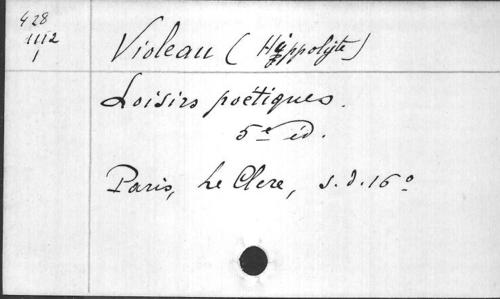 428
1112
1
Violeau (Hippolyte)
Loisirs poétiques.
5e éd.
Paris, Le Clere, s.d. 16°